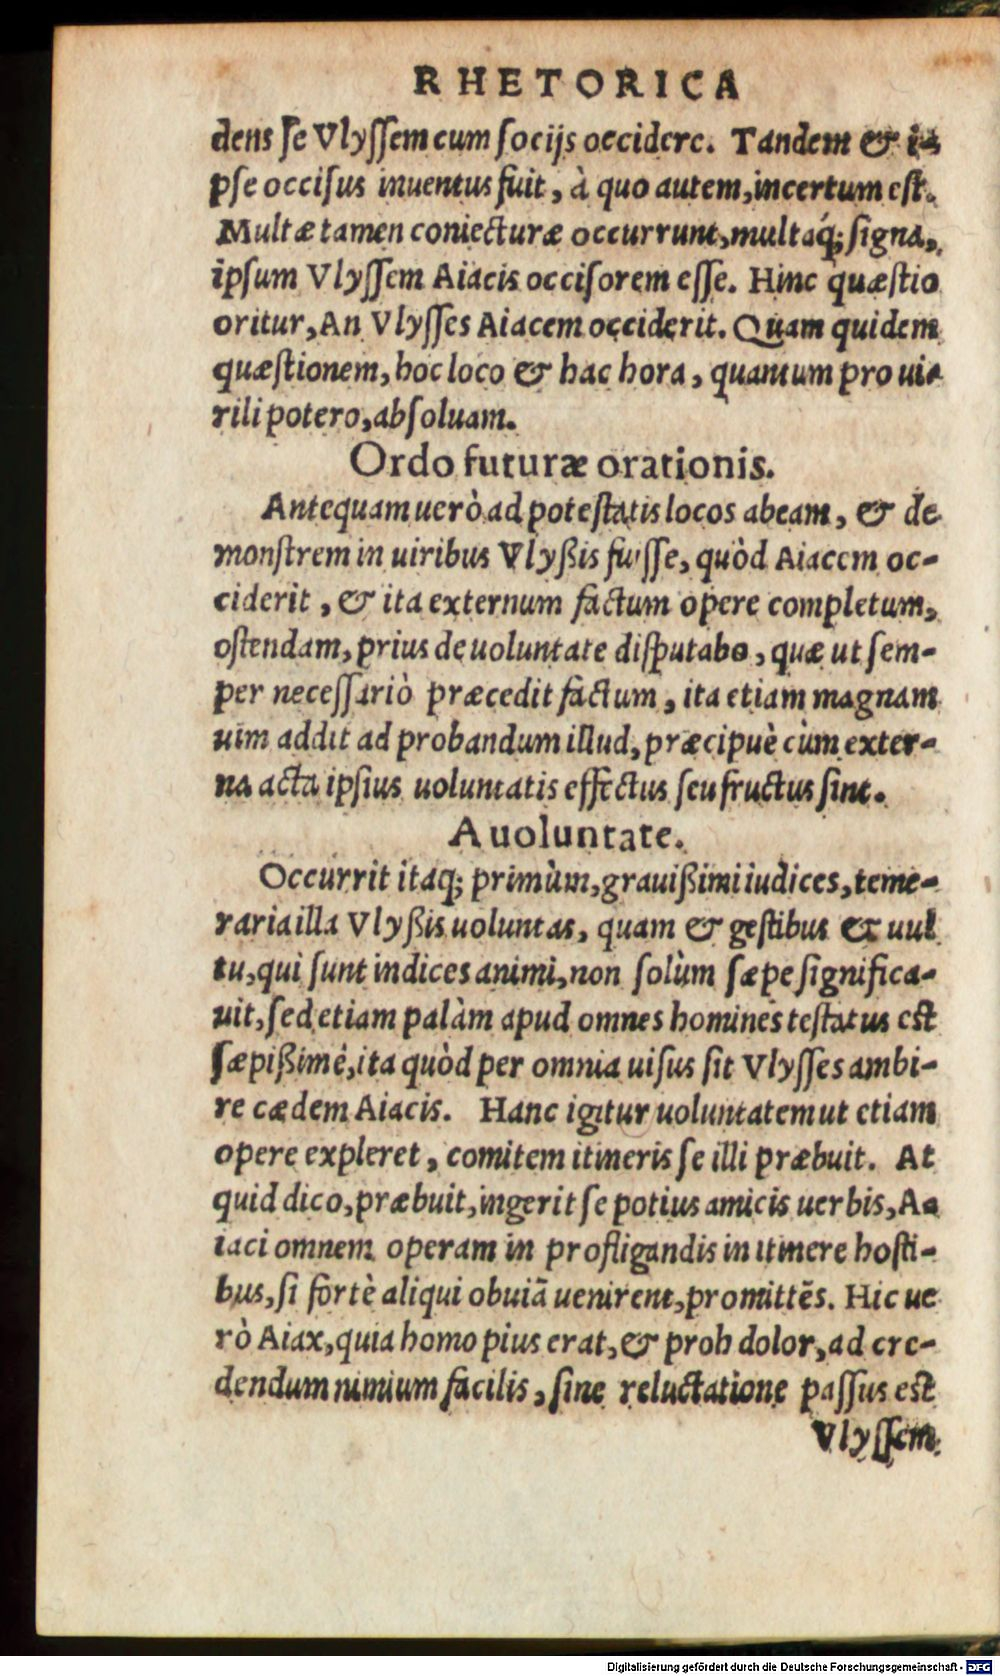 RHETORICA
dens se Vlyſſem cum ſocijs occidere. Tandem & i-
pſe occiſus inuentus fuit, à quo autem, incertum eſt.
Multæ tamen coniecturæ occurrunt, multaq́; ſigna,
ipſum Vlyſſem Aiacis occiſorem eſſe. Hinc quæſtio
oritur, An Vlyſſes Aiacem occiderit. Quam quidem
quæſtionem, hoc loco & hac hora, quantum pro ui-
rili potero, abſoluam.
Ordo futuræ orationis.
Antequam uerò ad poteſtatis locos abeam, & de
monſtrem in uiribus Vlyßis fuiſſe, quòd Aiacem oc-
ciderit, & ita externum factum opere completum,
oſtendam, prius de uoluntate diſputabo, quæ ut ſem-
per neceſſariò præcedit factum, ita etiam magnam
uim addit ad probandum illud, præcipuè cùm exter-
na acta ipſius uoluntatis effectus ſeu fructus ſint.
A uoluntate.
Occurrit itaq; primùm, grauißimi iudices, teme-
raria illa Vlyßis uoluntas, quam & geſtibus & uul
tu, qui ſunt indices animi, non ſolùm ſæpe ſignifica-
uit, ſed etiam palàm apud omnes homines teſtatus eſt
ſæpißimè, ita quòd per omnia uiſus ſit Vlyſſes ambi-
re cædem Aiacis. Hanc igitur uoluntatem ut etiam
opere expleret, comitem itineris ſe illi præbuit. At
quid dico, præbuit, ingerit ſe potius amicis uerbis, A-
iaci omnem operam in profligandis in itinere hoſti-
bus, ſi fortè aliqui obuiã uenirent, promittẽs. Hic ue
rò Aiax, quia homo pius erat, & proh dolor, ad cre-
dendum nimium facilis, ſine reluctatione paſſus eſt
Vlyſſem
Digitalisierung gefördert durch die Deutsche Forschungsgemeinschaft - DFG